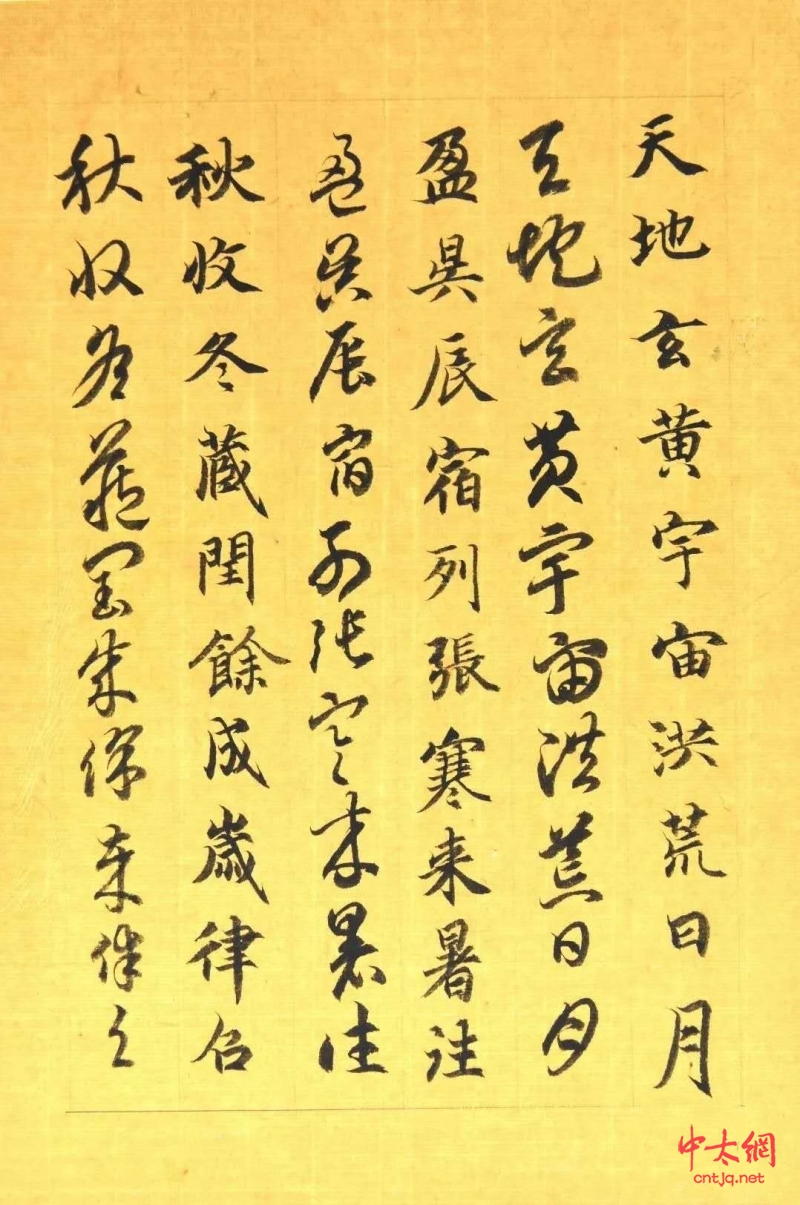 天地玄黄宇宙洪荒日月
天地玄黄宇宙洪荒日月
盈昃辰宿列張寒来暑往
盈昃辰宿列張寒来暑往
秋收冬藏閏餘成歲律召
秋收冬藏閏餘成歲律召
中太網
cntjq.net